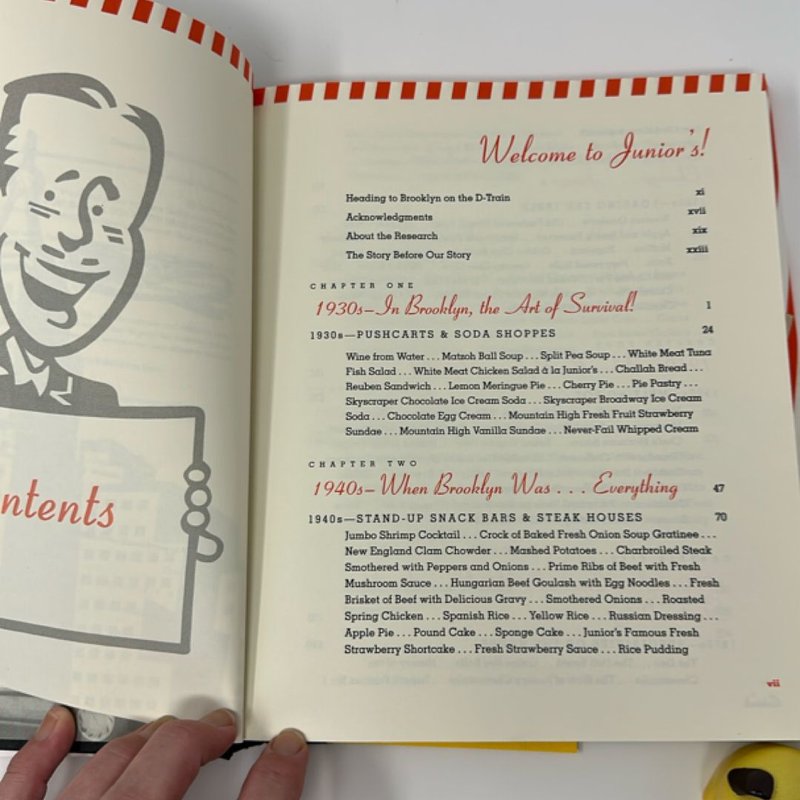 ntents
Welcome to Junior's!
Heading to Brooklyn on the D-Train xi
Acknowledgments xvii
About the Research xix
The Story Before Our Story xxiii
CHAPTER ONE
1930s—In Brooklyn, the Art of Survival! 1
1930s—PUSHCARTS & SODA SHOPPES 24
Wine from Water . . . Matzoh Ball Soup . . . Split Pea Soup . . . White Meat Tuna
Fish Salad . . . White Meat Chicken Salad à la Junior's . . . Challah Bread . . .
Reuben Sandwich . . . Lemon Meringue Pie . . . Cherry Pie . . . Pie Pastry . . .
Skyscraper Chocolate Ice Cream Soda . . . Skyscraper Broadway Ice Cream
Soda . . . Chocolate Egg Cream . . . Mountain High Fresh Fruit Strawberry
Sundae . . . Mountain High Vanilla Sundae . . . Never-Fail Whipped Cream
CHAPTER TWO
1940s—When Brooklyn Was . . . Everything 47
1940s—STAND-UP SNACK BARS & STEAK HOUSES 70
Jumbo Shrimp Cocktail . . . Crock of Baked Fresh Onion Soup Gratinee . . .
New England Clam Chowder . . . Mashed Potatoes . . . Charbroiled Steak
Smothered with Peppers and Onions . . . Prime Ribs of Beef with Fresh
Mushroom Sauce . . . Hungarian Beef Goulash with Egg Noodles . . . Fresh
Brisket of Beef with Delicious Gravy . . . Smothered Onions . . . Roasted
Spring Chicken . . . Spanish Rice . . . Yellow Rice . . . Russian Dressing . . .
Apple Pie . . . Pound Cake . . . Sponge Cake . . . Junior's Famous Fresh
Strawberry Shortcake . . . Fresh Strawberry Sauce . . . Rice Pudding
vii